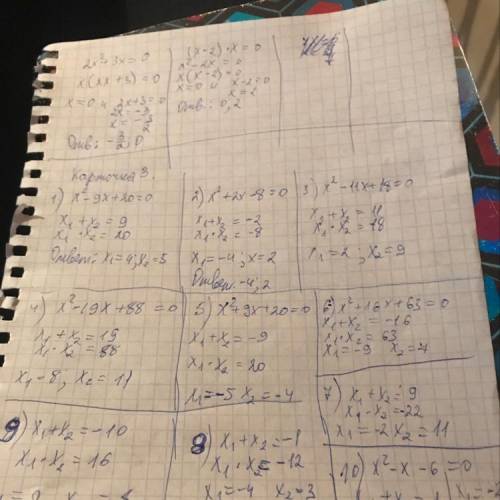 2x²+3x=0
x(2x+3)=0
x=0 и 2x+3=0
2x=-3
x=-3/2
Отв: -3/2; 0
(x-2)·x=0
x²-2x=0
x(x-2)=0
x=0 и x-2=0
x=2
Отв: 0, 2
Карточка 3.
1) x²-9x+20=0
x₁+x₂=9
x₁·x₂=20
Ответ: x₁=4; x₂=5
2) x²+2x-8=0
x₁+x₂=-2
x₁·x₂=-8
x₁=-4; x=2
Ответ: -4; 2
3) x²-11x+18=0
x₁+x₂=11
x₁·x₂=18
x₁=2; x₂=9
4) x²-19x+88=0
x₁+x₂=19
x₁·x₂=88
x₁-8; x₂=11
5) x²+9x+20=0
x₁+x₂=-9
x₁·x₂=20
x₁=-5 x₂=-4
6) x²+16x+63=0
x₁+x₂=-16
x₁·x₂=63
x₁=-9 x₂=7
7) x₁+x₂=9
x₁·x₂=-22
x₁=-2 x₂=11
9) x₁+x₂=-10
x₁·x₂=16
8) x₁+x₂=-1
x₁·x₂=-12
x₁=-4 x₂=3
10) x²-x-6=0